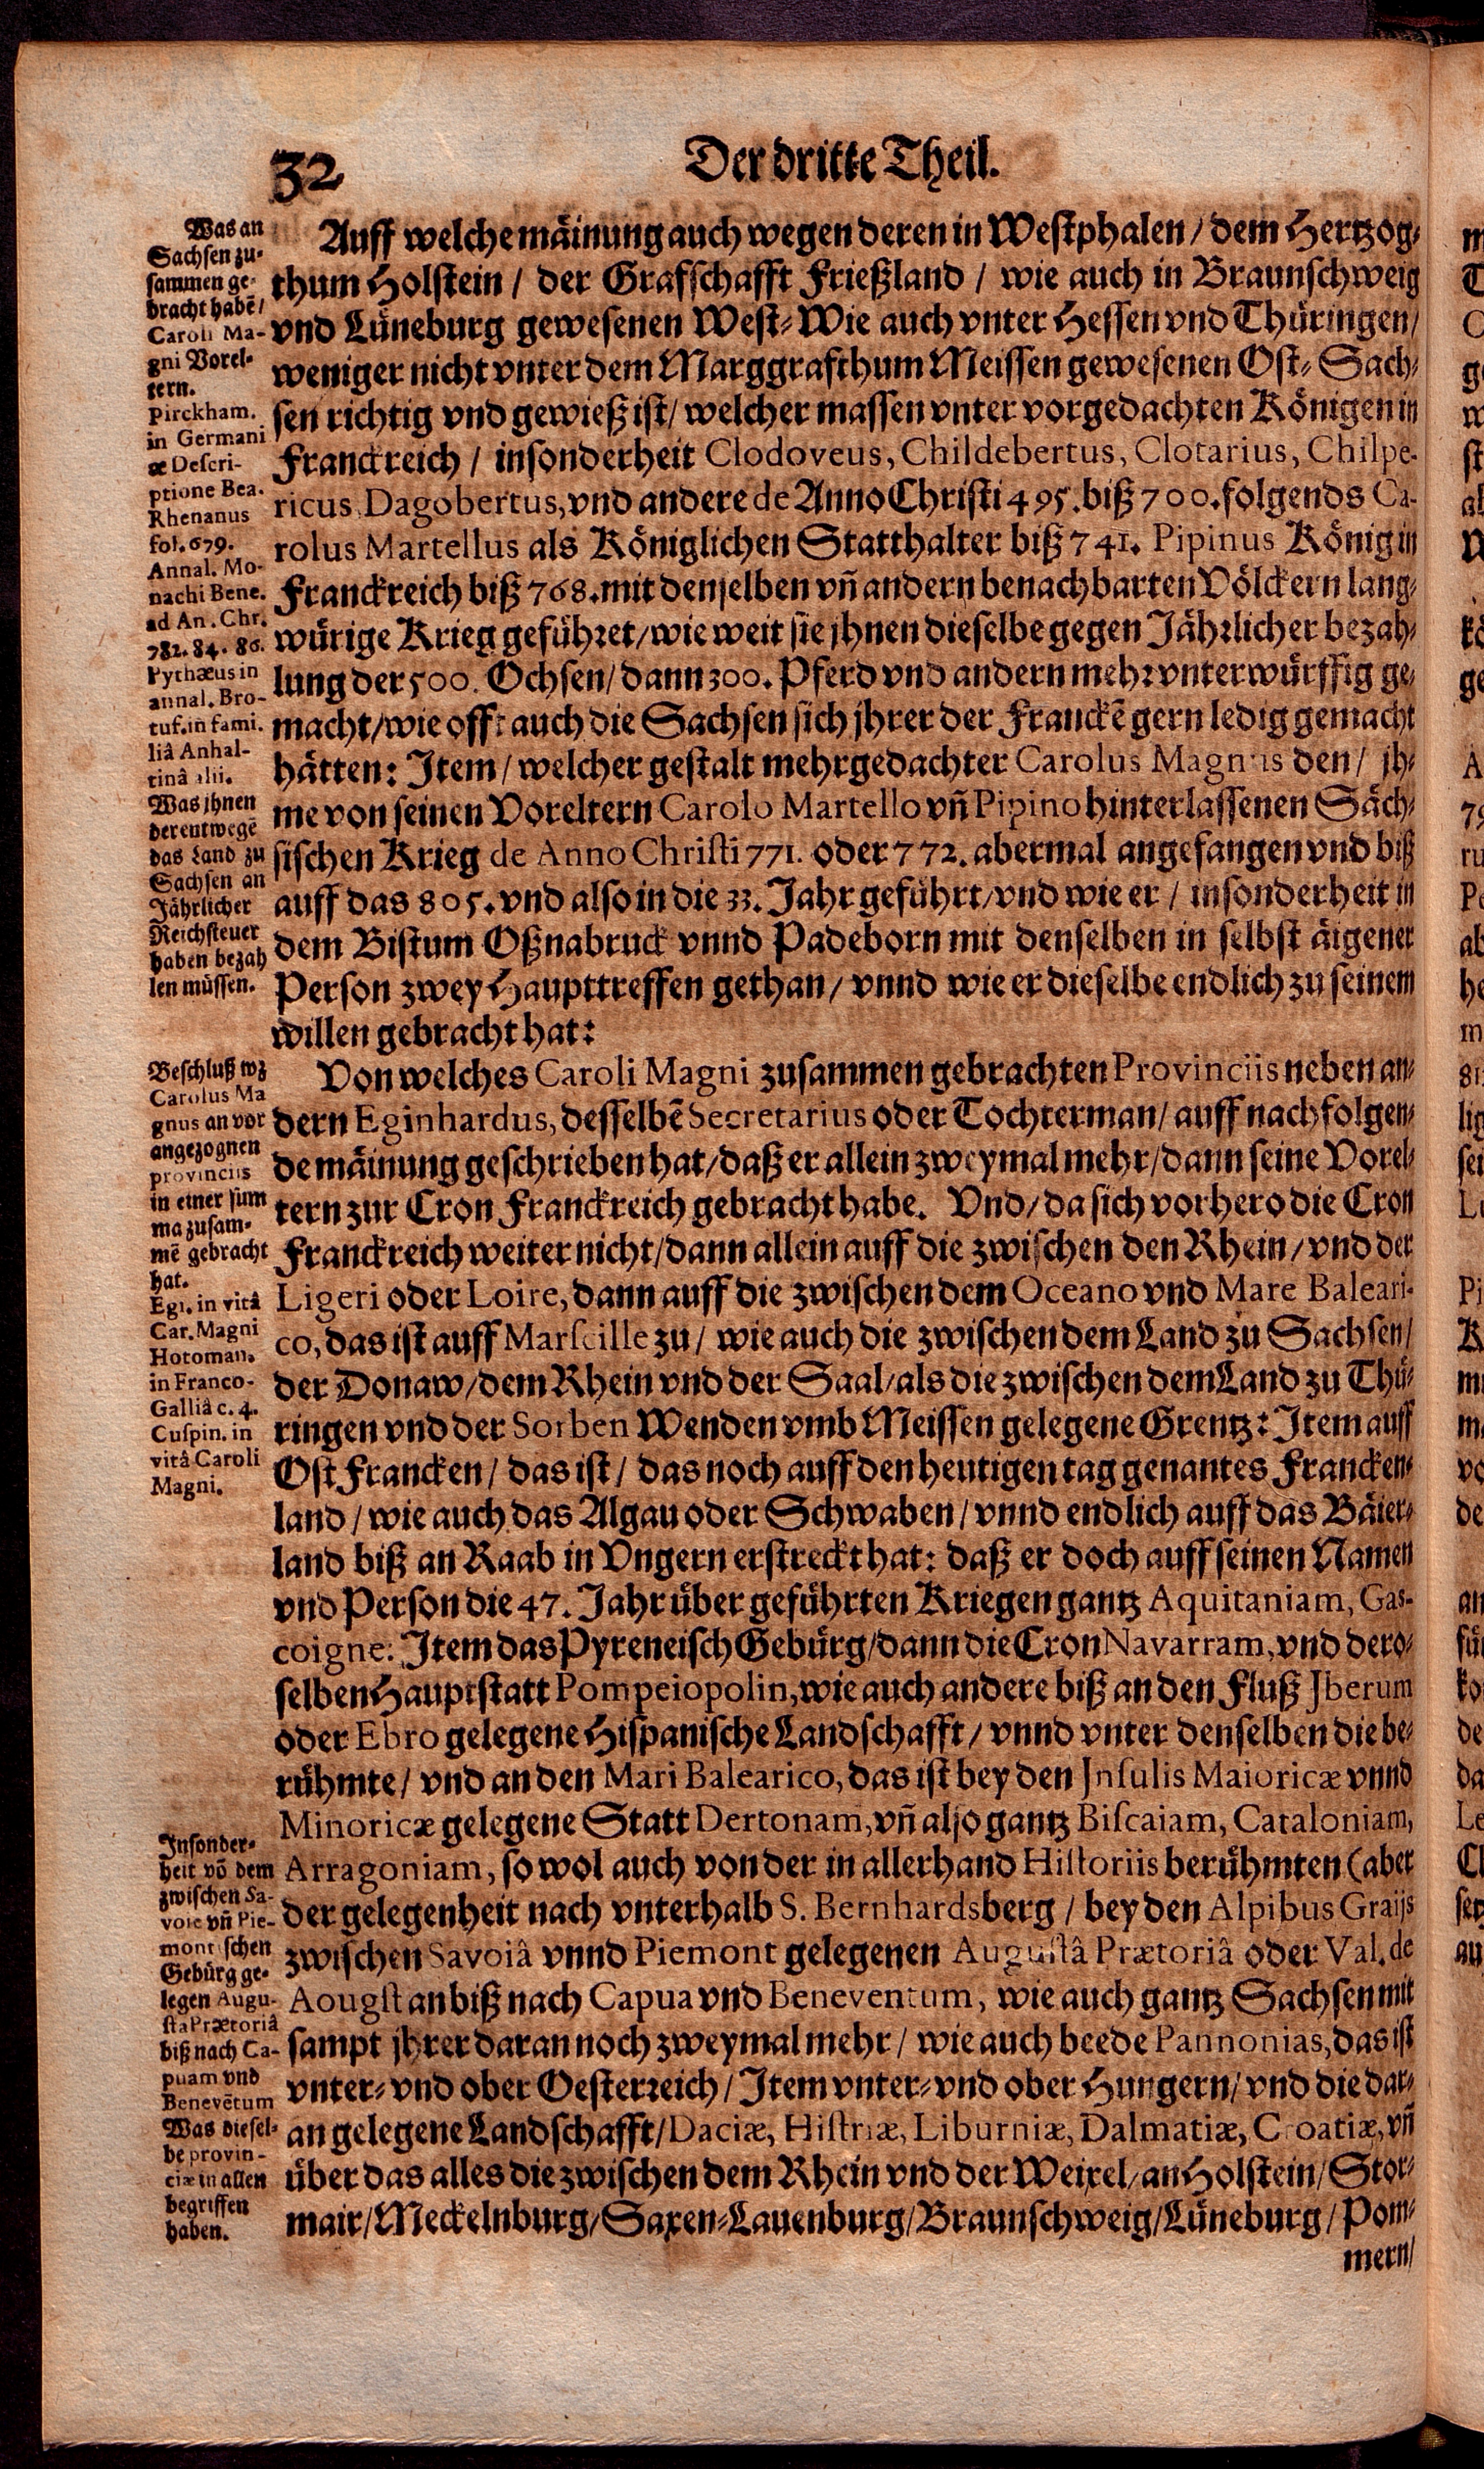 32
Der dritte Theil.
Was an
Sachsen zu-
sammen ge-
bracht habẽ/
Caroli Ma-
gni Vorel-
tern.
Pirckham.
in Germani
æ Descri-
ptione Bea.
Rhenanus
fol. 679.
Annal. Mo-
nachi Bene.
ad An. Chr.
782. 84. 86.
Pythæus in
annal. Bro-
tuf. in fami.
liâ Anhal-
tinâ alii.
Was jhnen
derentwegẽ
das Land zu
Sachsen an
Jährlicher
Reichsteuer
haben bezah
len müssen.
Auff welche mäinung auch wegen deren in Westphalen / dem Hertzog-
thum Holstein / der Grafschafft Frießland / wie auch in Braunschweig
vnd Lüneburg gewesenen West-Wie auch vnter Hessen vnd Thüringen/
weniger nicht vnter dem Marggrafthum Meissen gewesenen Ost-Sach-
sen richtig vnd gewieß ist/ welcher massen vnter vorgedachten Königen in
Franckreich / insonderheit Clodoveus, Childebertus, Clotarius, Chilpe-
ricus, Dagobertus, vnd andere de Anno Christi 495. biß 700. folgends Ca-
rolus Martellus als Königlichen Statthalter biß 741. Pipinus König in
Franckreich biß 768. mit denselben vñ andern benachbarten Völckern lang-
würige Krieg geführet/ wie weit sie jhnen dieselbe gegen Jährlicher bezah-
lung der 500. Ochsen/ dann 300. Pferd vnd andern mehr vnterwürffig ge-
macht/ wie offt auch die Sachsen sich jhrer der Franckẽ gern ledig gemacht
hätten: Item/ welcher gestalt mehrgedachter Carolus Magnus den/ jh-
me von seinen Voreltern Carolo Martello vñ Pipino hinterlassenen Säch-
sischen Krieg de Anno Christi 771. oder 772. abermal angefangen vnd biß
auff das 805. vnd also in die 33. Jahr geführt/ vnd wie er / insonderheit in
dem Bistum Oßnabruck vnnd Padeborn mit denselben in selbst äigener
Person zwey Haupttreffen gethan/ vnnd wie er dieselbe endlich zu seinem
willen gebracht hat:
Beschluß wz
Carolus Ma
gnus an vor
angezognen
provinciis
in einer sum
ma zusam-
mẽ gebracht
hat.
Egi. in vitâ
Car. Magni
Hotoman.
in Franco-
Galliâ c. 4.
Cuspin. in
vitâ Caroli
Magni.
Von welches Caroli Magni zusammen gebrachten Provinciis neben an-
dern Eginhardus, desselbẽ Secretarius oder Tochterman/ auff nachfolgen-
de mäinung geschrieben hat/ daß er allein zweymal mehr/ dann seine Vorel-
tern zur Cron Franckreich gebracht habe. Vnd/ da sich vorhero die Cron
Franckreich weiter nicht/ dann allein auff die zwischen den Rhein/ vnd der
Ligeri oder Loire, dann auff die zwischen dem Oceano vnd Mare Baleari-
co, das ist auff Marseille zu/ wie auch die zwischen dem Land zu Sachsen/
der Donaw/ dem Rhein vnd der Saal/ als die zwischen dem Land zu Thü-
ringen vnd der Sorben Wenden vmb Meissen gelegene Grentz: Item auff
Ost Francken/ das ist/ das noch auff den heutigen tag genantes Francken-
land/ wie auch das Algau oder Schwaben/ vnnd endlich auff das Bäier-
land biß an Raab in Vngern erstreckt hat: daß er doch auff seinen Namen
vnd Person die 47. Jahr über geführten Kriegen gantz Aquitaniam, Gas-
coigne: Item das Pyreneisch Gebürg/ dann die Cron Navarram, vnd dero-
selben Hauptstatt Pompeiopolin, wie auch andere biß an den Fluß Jberum
oder Ebro gelegene Hispanische Landschafft/ vnnd vnter denselben die be-
rühmte/ vnd an den Mari Balearico, das ist bey den Jnsulis Maioricæ vnnd
Minoricæ gelegene Statt Dertonam, vñ also gantz Biscaiam, Cataloniam,
Arragoniam, so wol auch von der in allerhand Historiis berühmten (aber
der gelegenheit nach vnterhalb S. Bernhardsberg / bey den Alpibus Graijs
zwischen Savoiâ vnnd Piemont gelegenen Augustâ Prætoriâ oder Val. de
Aougst an biß nach Capua vnd Beneventum, wie auch gantz Sachsen mit
sampt jhrer daran noch zweymal mehr/ wie auch beede Pannonias, das ist
vnter- vnd ober Oesterreich/ Item vnter- vnd ober Hungern/ vnd die dar-
an gelegene Landschafft/ Daciæ, Histriæ, Liburniæ, Dalmatiæ, Croatiæ, vñ
über das alles die zwischen dem Rhein vnd der Weixel/ an Holstein/ Stor-
mair/ Meckelnburg/ Saxen-Lauenburg/ Braunschweig/ Lüneburg/ Pom-
mern/
Insonder-
heit võ dem
zwischen Sa-
voie vñ Pie-
montischen
Gebürg ge-
legen Augu-
sta Prætoriâ
biß nach Ca-
puam vnd
Benevẽtum
Was diesel-
be provin-
ciæ in allen
begriffen
haben.